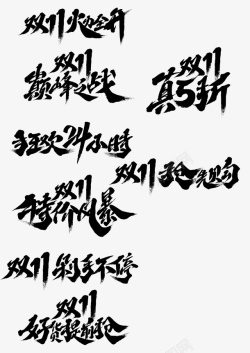 双11火力全开
双11
巅峰之战
双11
真5折
狂欢24小時
双11抢先购
双11
特价风暴
双11剁手不停
双11
好货提前抢